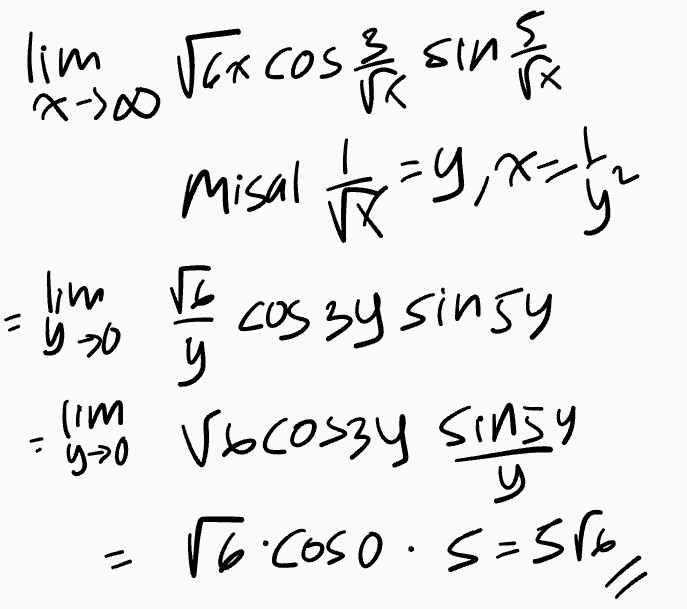 lim x→∞ √6x cos 3/√x sin 5/√x
misal 1/√x = y, x = 1/y²
= lim y→0 √6/y cos 3y sin 5y
= lim y→0 √6 cos 3y sin 5y/y
= √6 · cos 0 · 5 = 5√6 //